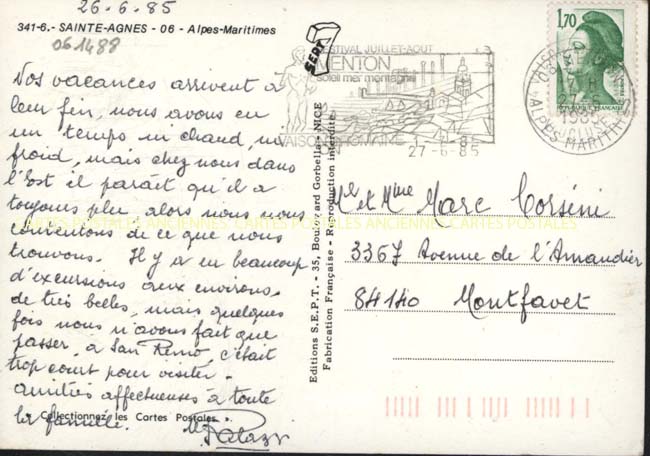 26-6-85
341-6.- SAINTE-AGNES - 06 - Alpes-Maritimes
061488
Nos vacances arrivent à
leur fin, nous avons eu
un temps ni chaud, ni
froid, mais chez nous dans
l'Est il paraît qu'il a
toujours plu alors nous nous
contentons de ce que nous
trouvons. Il y a eu beaucoup
d'excursions aux environs
de très belles, mais quelques
fois nous n'avons fait que
passer, à San Remo, c'était
trop court pour visiter.
amitiés affectueuses à toute
la famille.
Collectionnez les Cartes Postales
SEPT
FESTIVAL JUILLET-AOUT
MENTON
soleil mer montagne
VAISON ROMAINE
27-6-85
Editions S.E.P.T. - 35, Boulevard Gorbella - NICE
Fabrication Française - Reproduction interdite
1,70
REPUBLIQUE FRANÇAISE
1985
ALPES MARITIMES
Mr et Mme Marc Corsini
3367 Avenue de l'Amandier
84140 Montfavet
CARTES POSTALES ANCIENNES CARTES POSTALES ANCIENNES CARTES POSTALES